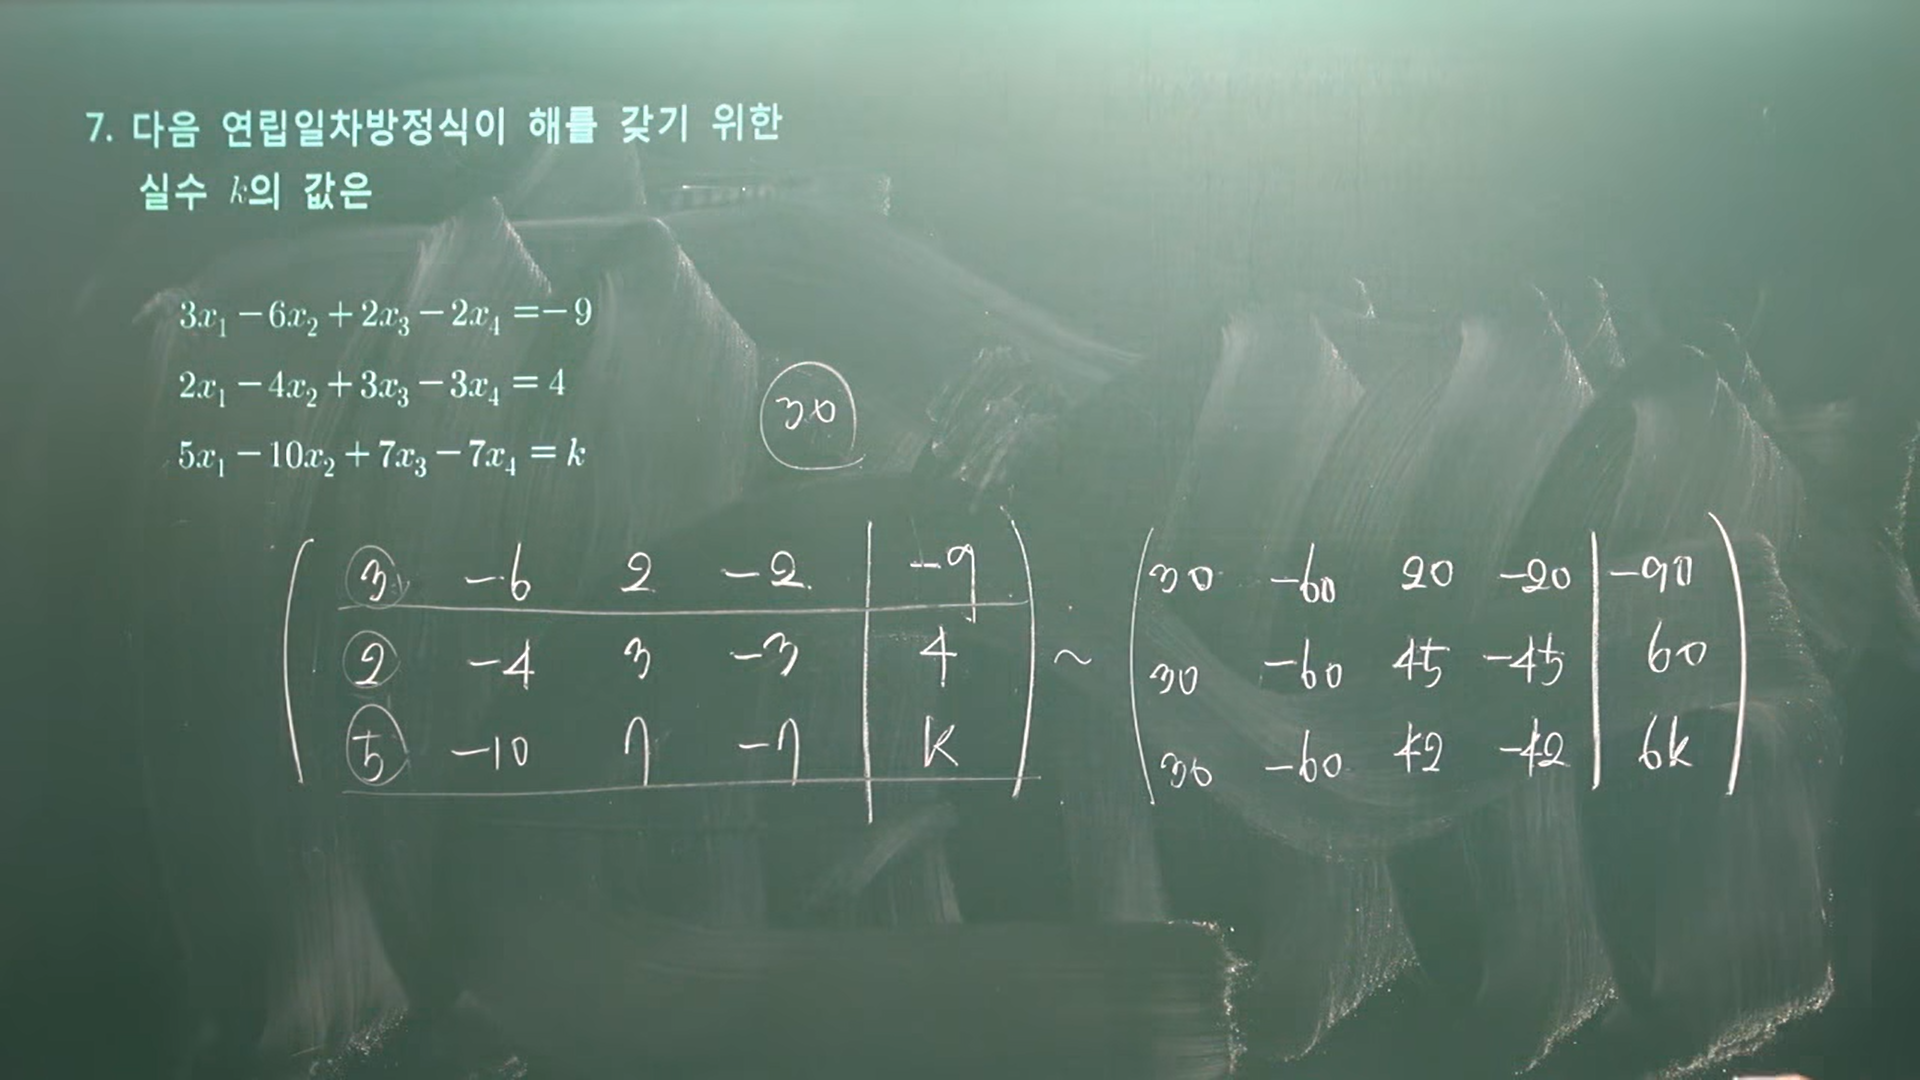 7. 다음 연립일차방정식이 해를 갖기 위한
실수 k의 값은
3x₁ − 6x₂ + 2x₃ − 2x₄ = −9
2x₁ − 4x₂ + 3x₃ − 3x₄ = 4
5x₁ − 10x₂ + 7x₃ − 7x₄ = k
30
3 −6 2 −2 | −9
2 −4 3 −3 | 4
5 −10 7 −7 | k
~
30 −60 20 −20 | −90
30 −60 45 −45 | 60
30 −60 42 −42 | 6k